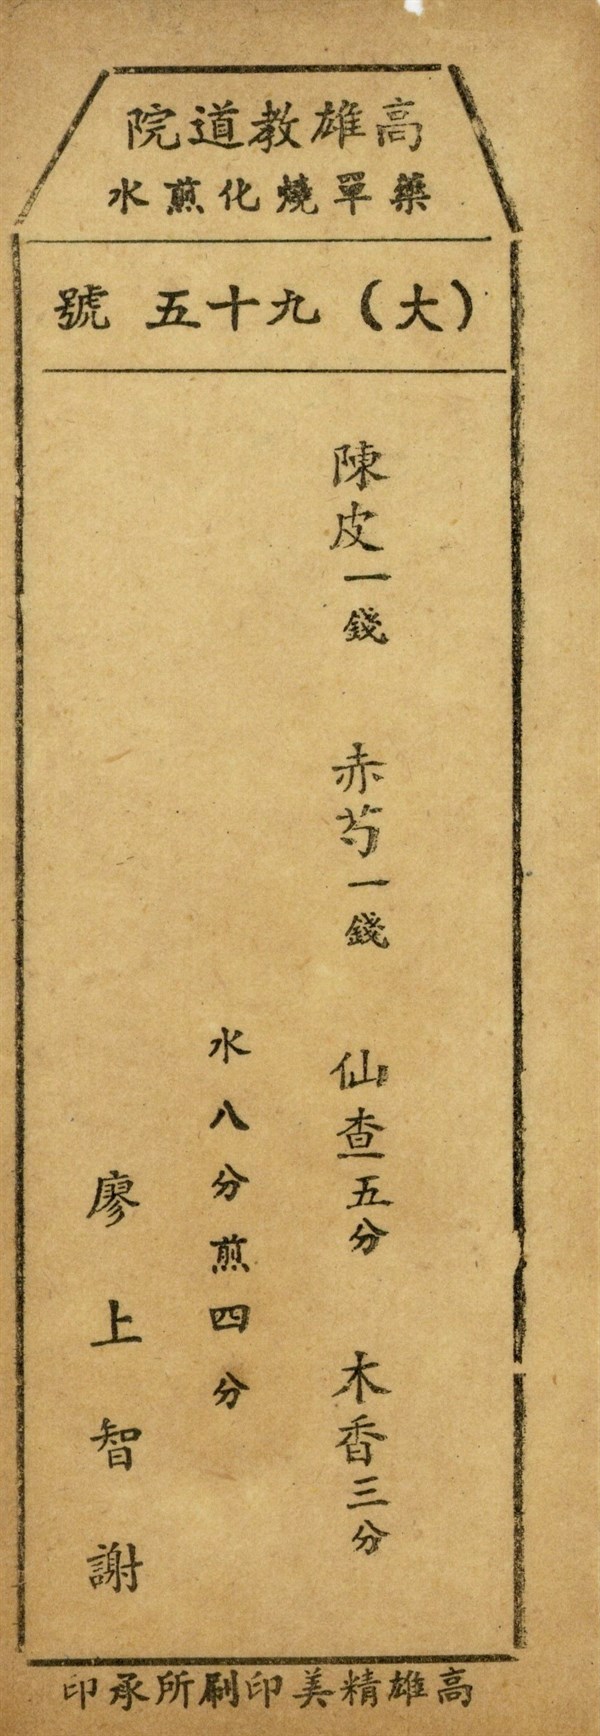 高雄教道院
藥單燒化煎水
（大）九十五 號
陳皮一錢 赤芍一錢 仙查五分 木香三分
水八分煎四分
廖上智謝
高雄精美印刷所承印